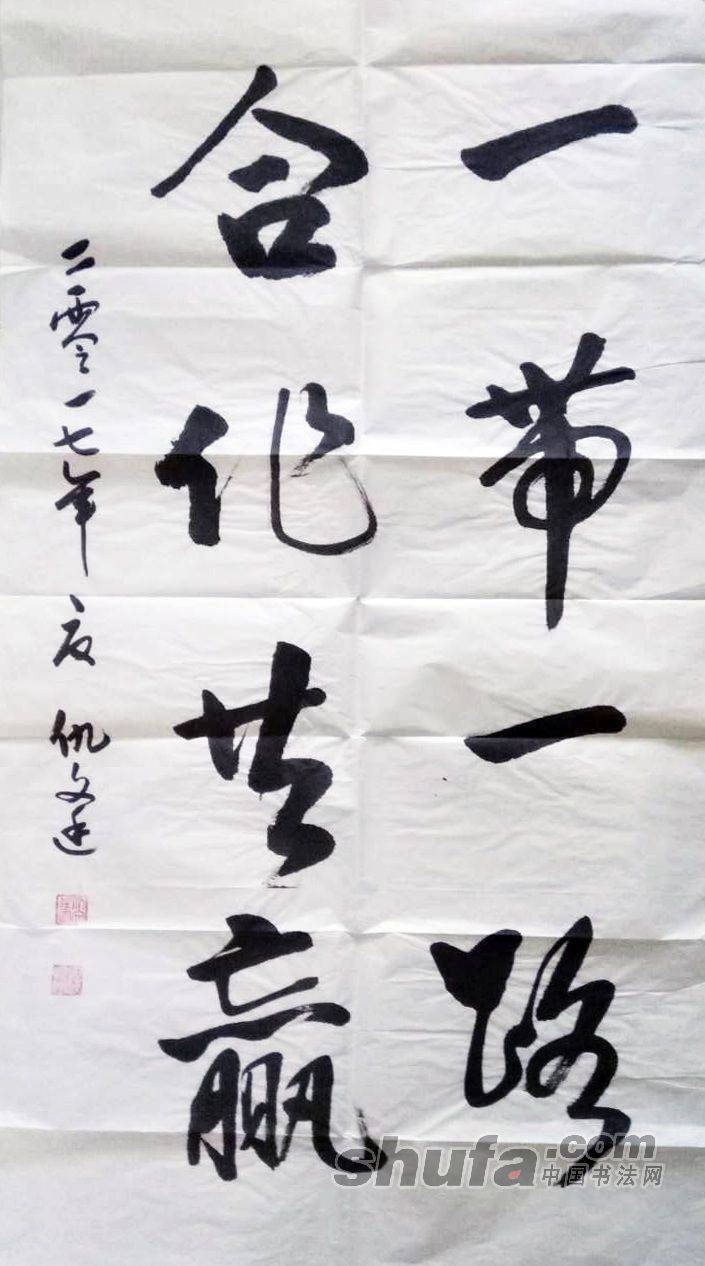 一帶一路
合作共赢
二零一七年夏 仇文
shufa.com
中国书法网